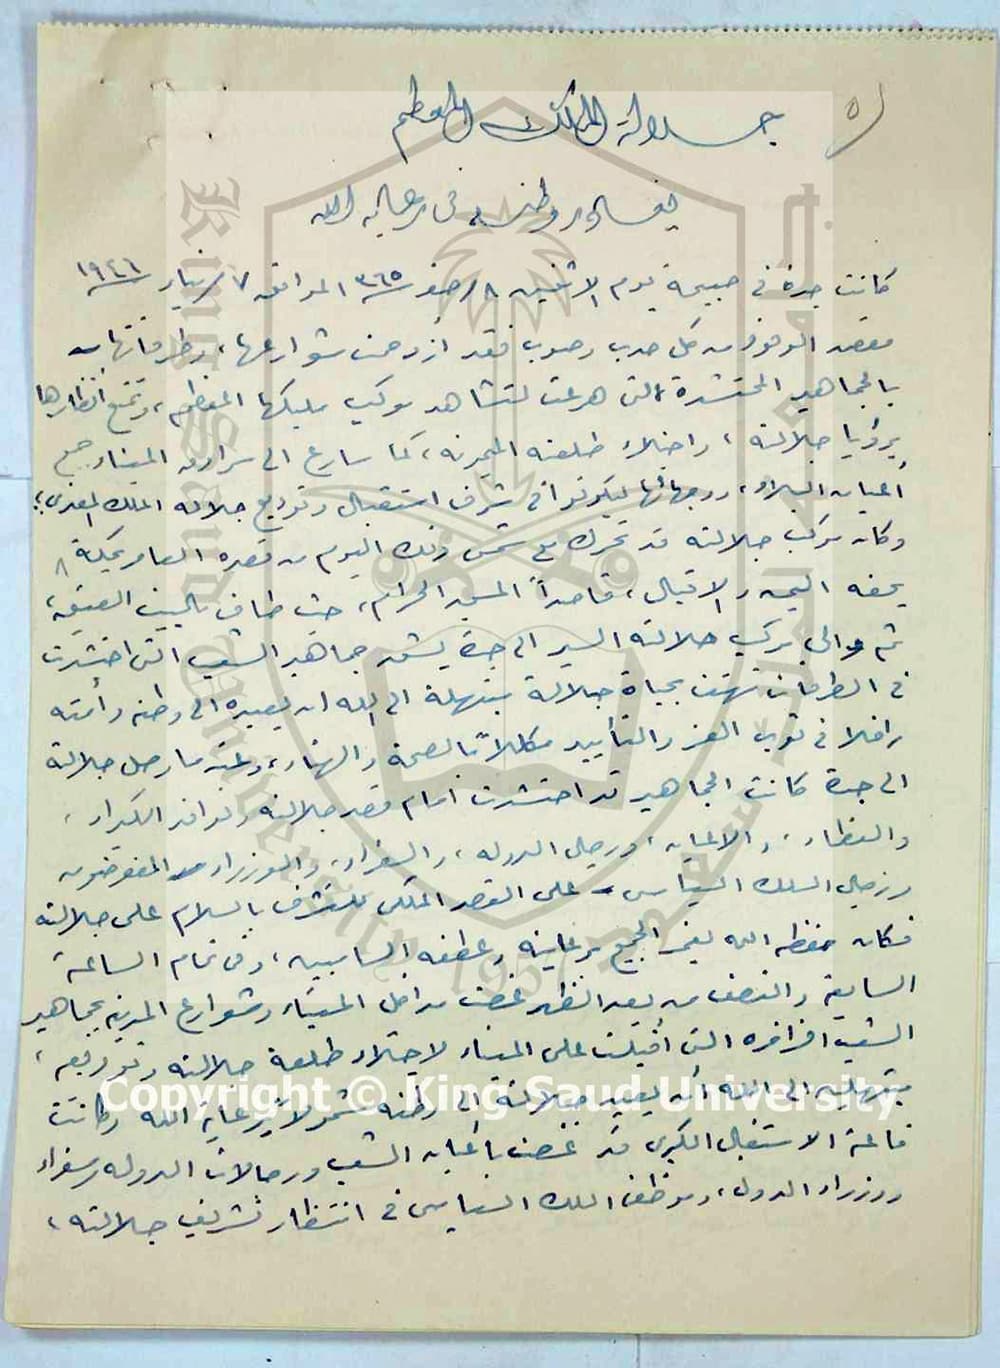 ٥١
جلالة الملك المعظم
يغادر وطنه في رعاية الله
كانت جدة في صبيحة يوم الاثنين ٨/صفر ١٣٦٥ الموافق ٧/يناير ١٩٤٦
مقصد الوفود من كل حدب وصوب فقد ازدحمت شوارعها، وطرقاتها
بالجماهير المحتشدة التي هرعت لتشاهد موكب مليكها المعظم، وتمتع أنظارها
برؤيا جلالته، واجتلاء طلعته الميمونة، كما سارع الى سرادق الميناء جميع
أعيان البلاد، ووجهائها ليكونوا في شرف استقبال وتوديع جلالة الملك المفدى؛
وكان موكب جلالته قد تحرك مع شمس ذلك اليوم من قصره العامر بمكة
يحفه اليمن والاقبال، قاصداً المسجد الحرام، حيث طاف بالبيت العتيق،
ثم والى موكب جلالته السير الى جدة يشق جماهير الشعب التي احتشدت
في الطرقات تهتف بحياة جلالة مبتهلة الى الله ان يعيده الى وطنه وأمته
رافلا في ثوب العز والتأييد مكللاً بالصحة والهناء، وعندما وصل جلالة
الى جدة كانت الجماهير قد احتشدت أمام قصر جلالته وتوافد الكبراء،
والعظماء، والاعيان، ورجال الدولة، والسفراء، والوزراء المفوضون
ورجال السلك السياسي على القصر الملكي للتشرف بالسلام على جلالته
فكان حفظه الله يغمر الجميع برعايته وعطفه الساميين، وفي تمام الساعة
السابعة والنصف من بعد الظهر غصت مداخل الميناء وشوارع المدينة بجماهير
الشعب الزاخرة التي أقبلت على الميناء لاجتلاء طلعة جلالته وتوديعه،
مبتهلين الى الله أن يعيد جلالته الى وطنه مشمولا برعاية الله وكانت
قاعة الاستقبال الكبرى قد غصت بأعيان الشعب ورجالات الدولة وسفراء
ووزراء الدول، وموظفي السلك السياسي في انتظار تشريف جلالته،
Copyright © King Saud University
King Saud University
1957
جامعة الملك سعود